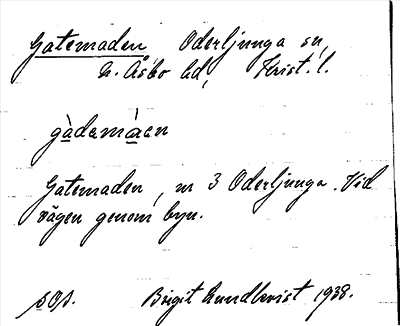 Gatemaden, Oderljunga sn,
N. Åsbo hd, Krist. l.
gàdemàen
Gatemaden, nr 3 Oderljunga. Vid
vägen genom byn.
sos. Birgit Lundkvist 1938.